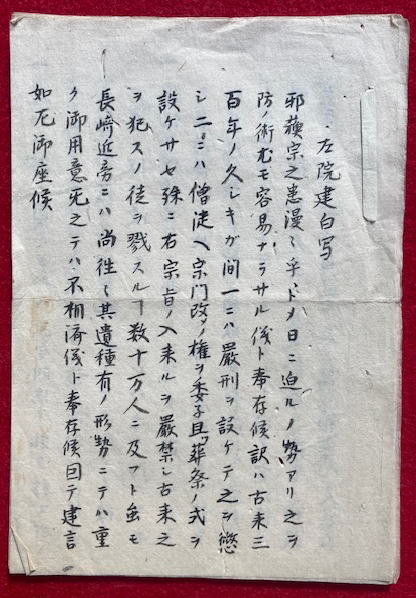 左院建白写
邪蘓宗之患漫〻乎トメ日ニ迫ルノ勢アリ之ヲ
防ノ術尤モ容易ナラサル儀ト奉存候訳ハ古来三
百年ノ久シキガ間一ニハ厳刑ヲ設ケテ之ヲ懲
シ二ニハ僧徒ヘ宗門改メノ権ヲ委子且葬祭ノ式ヲ
設ケサセ殊ニ右宗旨ノ入来ルヲ厳禁シ古来之
ヲ犯スノ徒ヲ戮スルヿ数十万人ニ及フト虽モ
長崎近旁ニハ尚徃〻其遺種有ノ形勢ニテハ重
ク御用意无之テハ不相済儀ト奉存候因テ建言
如左御座候